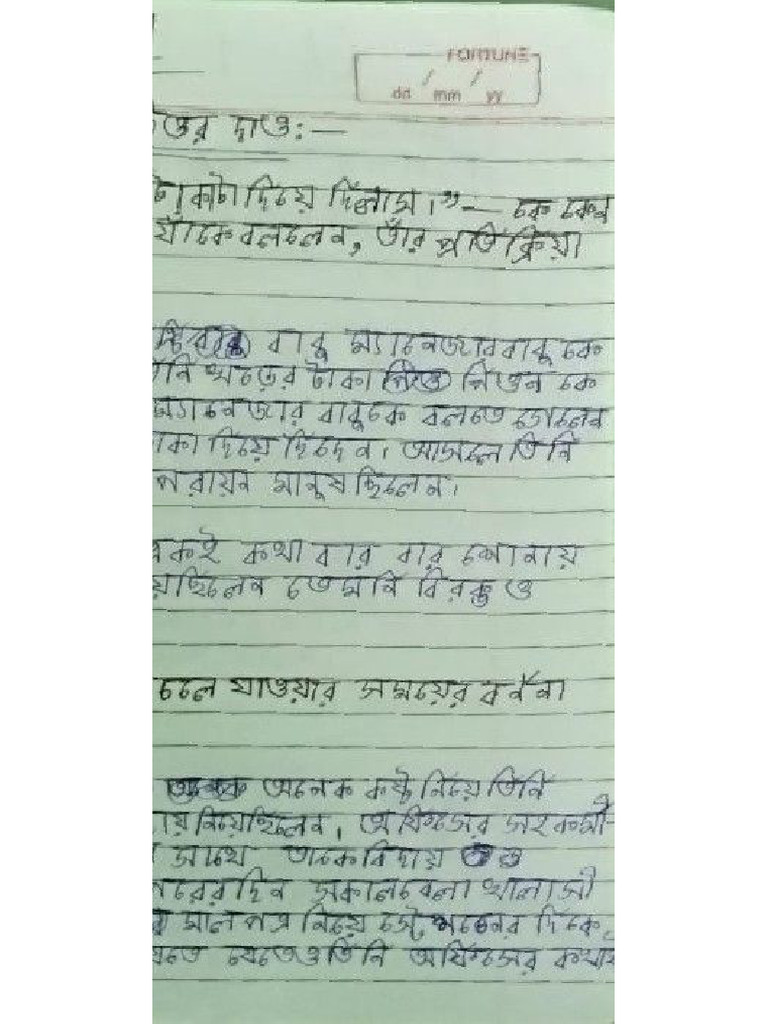 FORTUNE
/ /
dd mm yy
ত্তর দাও :—
টাকাটা দিয়ে দিলাম।" — কে কেন
যাঁকে বললেন, তাঁর প্রতিক্রিয়া
বাবু ম্যানেজারবাবু কে
নি খড়ের টাকা নিতেন কে
ম্যানেজার বাবুকে বলতে গেলেন
কা দিয়ে দিদেন। আসলে তিনি
পরায়ন মানুষ ছিলেন।
একই কথা বার বার শোনায়
য়েছিলেন তেমনি বিরক্ত ও
চলে যাওয়ার সময়ের বর্ননা
অনেক কষ্ট নিয়ে তিনি
ায় নিয়েছিলেন। অফিসের সহকর্মী-
সাথে তাকে বিদায় ও
পরেরদিন সকালবেলা খালাসী
মালপত্র নিয়ে স্টেশনের দিকে,
যেতে যেতেও তিনি অফিসের কথাই